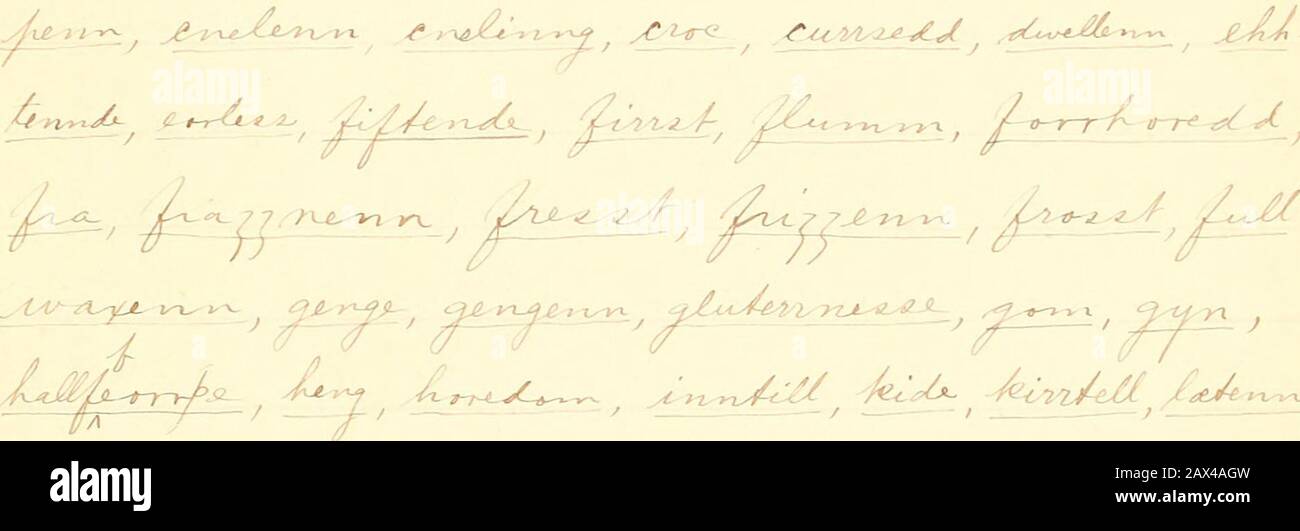 penn, cnelenn, cnelinng, croc, currsedd, dwellenn, ehh-
tennde, eorless, fiftende, firrst, flumm, forrhoredd,
fra, fraȝȝnenn, fresst, friȝȝenn, frosst, full
waxenn, genge, gengenn, gluterrnesse, gom, gyn,
hallfeorrþe, heng, horedom, inntill, kide, kirrtell, lætenn
alamy
Image ID: 2AX4AGW
www.alamy.com